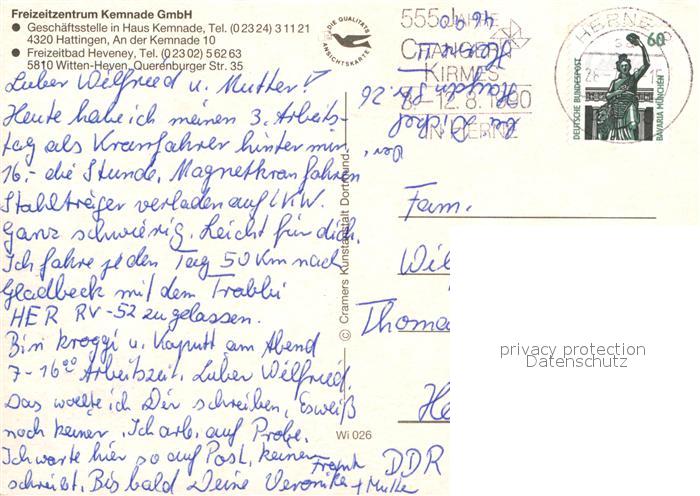 Freizeitzentrum Kemnade GmbH
● Geschäftsstelle in Haus Kemnade, Tel. (0 23 24) 3 11 21
4320 Hattingen, An der Kemnade 10
● Freizeitbad Heveney, Tel. (0 23 02) 5 62 63
5810 Witten-Heven, Querenburger Str. 35
Lieber Wilfried u. Mutter!
Heute habe ich meinen 3. Arbeits-
tag als Kranfahrer hinter mir
16,- die Stunde, Magnetkranfahren
Stahlträger verladen auf LKW.
Ganz schwierig. Leicht für dich.
Ich fahre jeden Tag 50 Km nach
Gladbeck mit dem Trabbi
HER RV-52 zugelassen.
Bin kroggi u. Kaputt am Abend
7-16⁰⁰ Arbeitszeit. Lieber Wilfried.
Das wollte ich Dir schreiben, Es weiß
noch keiner. Ich arb. auf Probe.
Ich warte hier so auf Post, keiner
schreibt. Bis bald Deine Veronika
Frank
+ Mutter
DIE QUALITÄTS
ANSICHTSKARTE
© Cramers Kunstanstalt Dortmund
Wi 026
555 JAHRE
KIRMES
8.-12.8.1990
IN HERNE
HERNE
60
DEUTSCHE BUNDESPOST
BAVARIA MÜNCHEN
4690
Herne II
26
Fam.
Wil
Thoma
He
DDR
privacy protection
Datenschutz